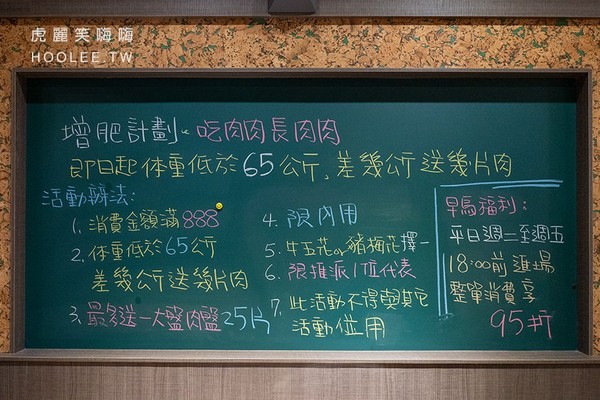 虎麗笑嗨嗨
HOOLEE.TW
增肥計劃、吃肉肉長肉肉
即日起体重低於65公斤,差幾公斤送幾片肉
活動辦法:
1. 消費金額滿888
2. 体重低於65公斤
差幾公斤送幾片肉
3. 最多送一大盛肉盤25片
4. 限內用
5. 牛五花or豬梅花擇一
6. 限推派1位代表
7. 此活動不得與其它
活動併用
早鳥福利:
平日週二至週五
18:00前進場
整單消費享
95折